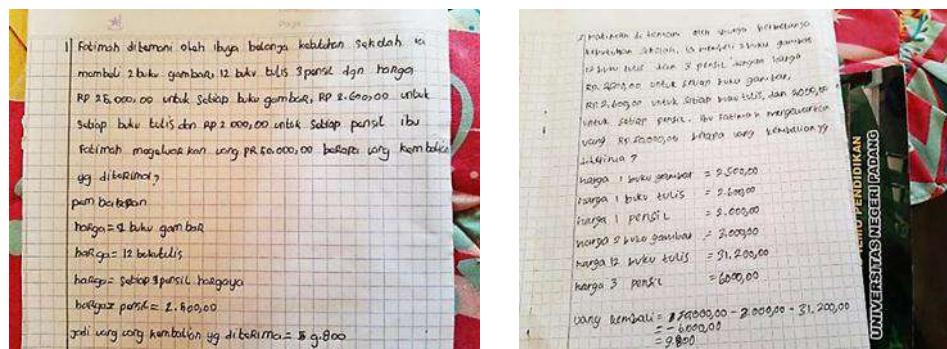 1 Fatimah ditemani oleh ibuya belanja kebutuhan sekolah ia
membeli 2 buku gambar, 12 buku tulis 3 pensil dgn harga
RP 25.000,00 untuk setiap buku gambar, RP 2.600,00 untuk
setiap buku tulis dan RP 2 000,00 untuk setiap pensil ibu
Fatimah mengeluarkan uang PR 50.000,00 berapa uang kembalian
yg diterima?
harga = 2 buku gambar
harga = 12 buku tulis
harga = setiap pensil hargaya
pensil = 2.600,00
Jadi uang uang kembalian yg diterima = 9.800
ditemani oleh berbelanja
kebutuhan sekolah, ia membeli 2 buku gambar
12 buku tulis dan 3 pensil dengan harga
untuk setiap buku gambar,
Rp. 2.600,00 untuk setiap buku tulis, dan 2000,00
untuk setiap pensil. Ibu Fatimah mengeluarkan
uang Rp 50.000,00 berapa uang kembalian yg
diterima ?
harga 1 buku gambar = 2.500,00
harga 1 buku tulis = 2.600,00
harga 1 pensil = 2.000,00
harga 2 buku gambar = 3.000,00
harga 12 buku tulis = 31.200,00
harga 3 pensil = 6000,00
uang kembali = 50.000,00 - 3.000,00 - 31.200,00
= - 6.000,00
= 9.800
ILMU PENDIDIKAN
UNIVERSITAS NEGERI PADANG